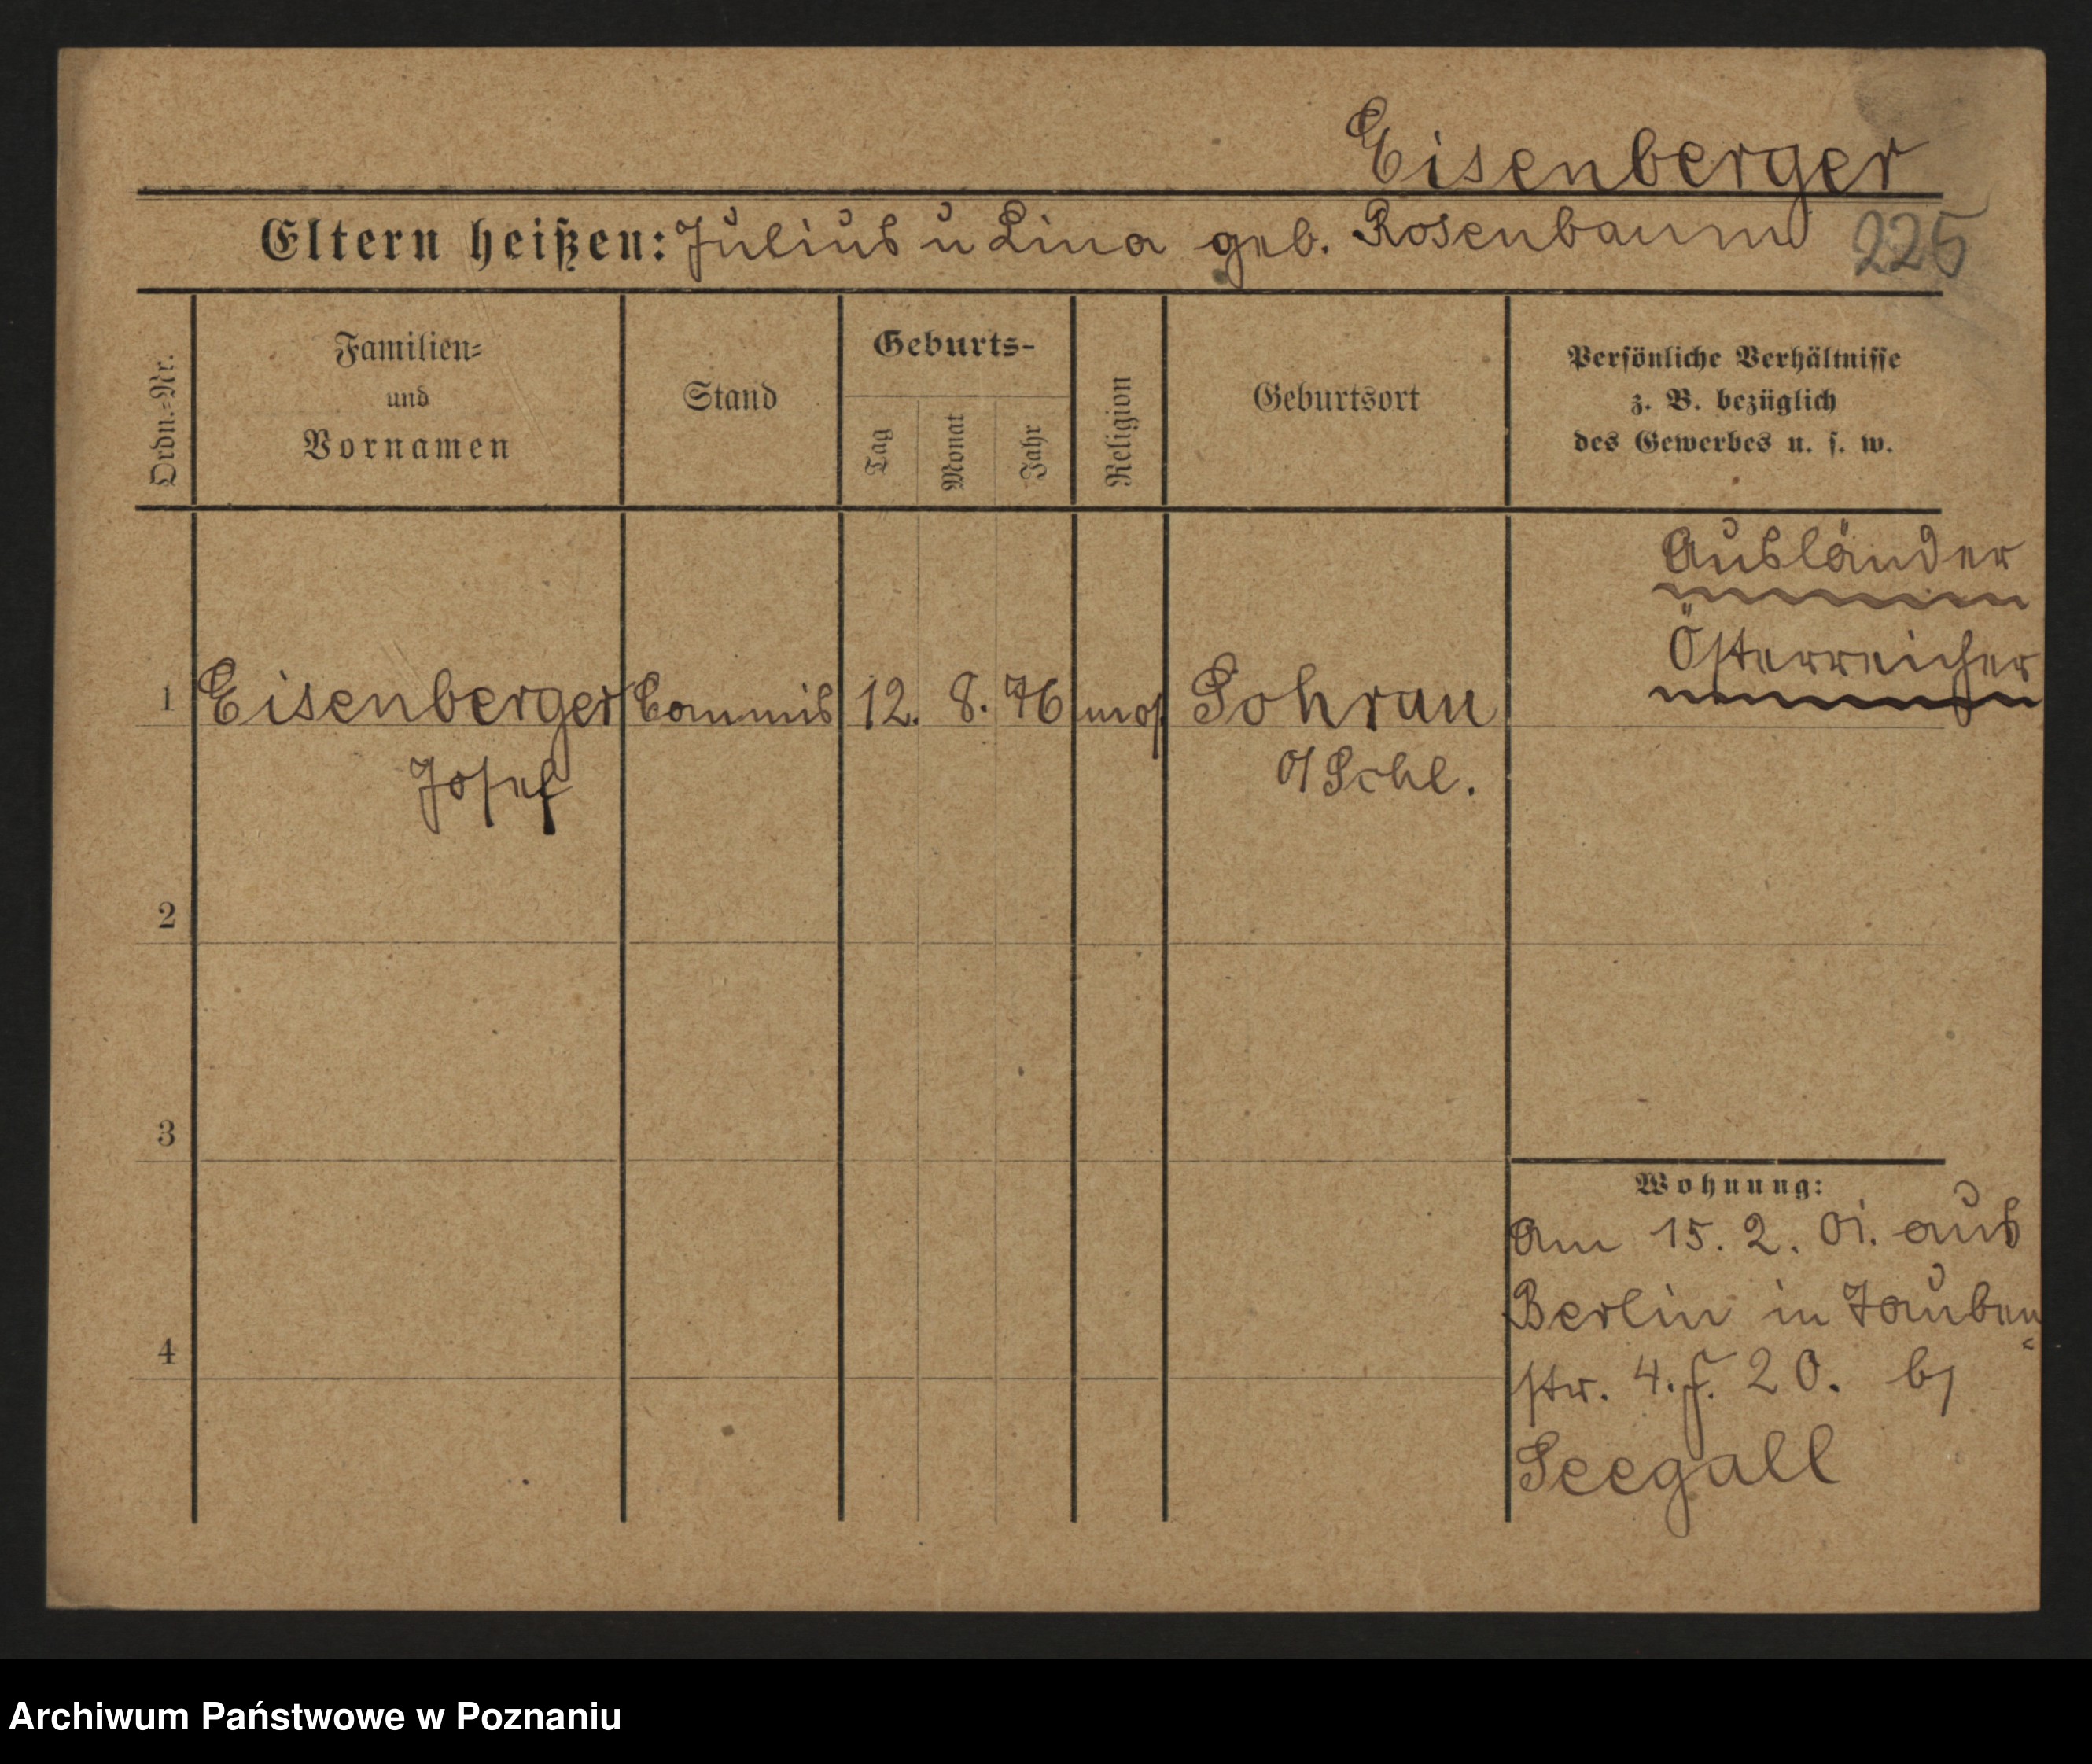 Eisenberger
Eltern heißen: Julius u Lina geb. Rosenbaum 225
Ordn.-Nr.
Familien-
und
Vornamen
Stand
Geburts-
Tag
Monat
Jahr
Religion
Geburtsort
Persönliche Verhältnisse
z. B. bezüglich
des Gewerbes u. s. w.
Ausländer
Österreicher
1 Eisenberger Commis 12. 8. 76 mos Sohrau
Josef O/Schl.
2
3
4
Wohnung:
Am 15. 2. 01. aus
Berlin in Tauben-
str. 4. f. 20. b/
Seegall
Archiwum Państwowe w Poznaniu